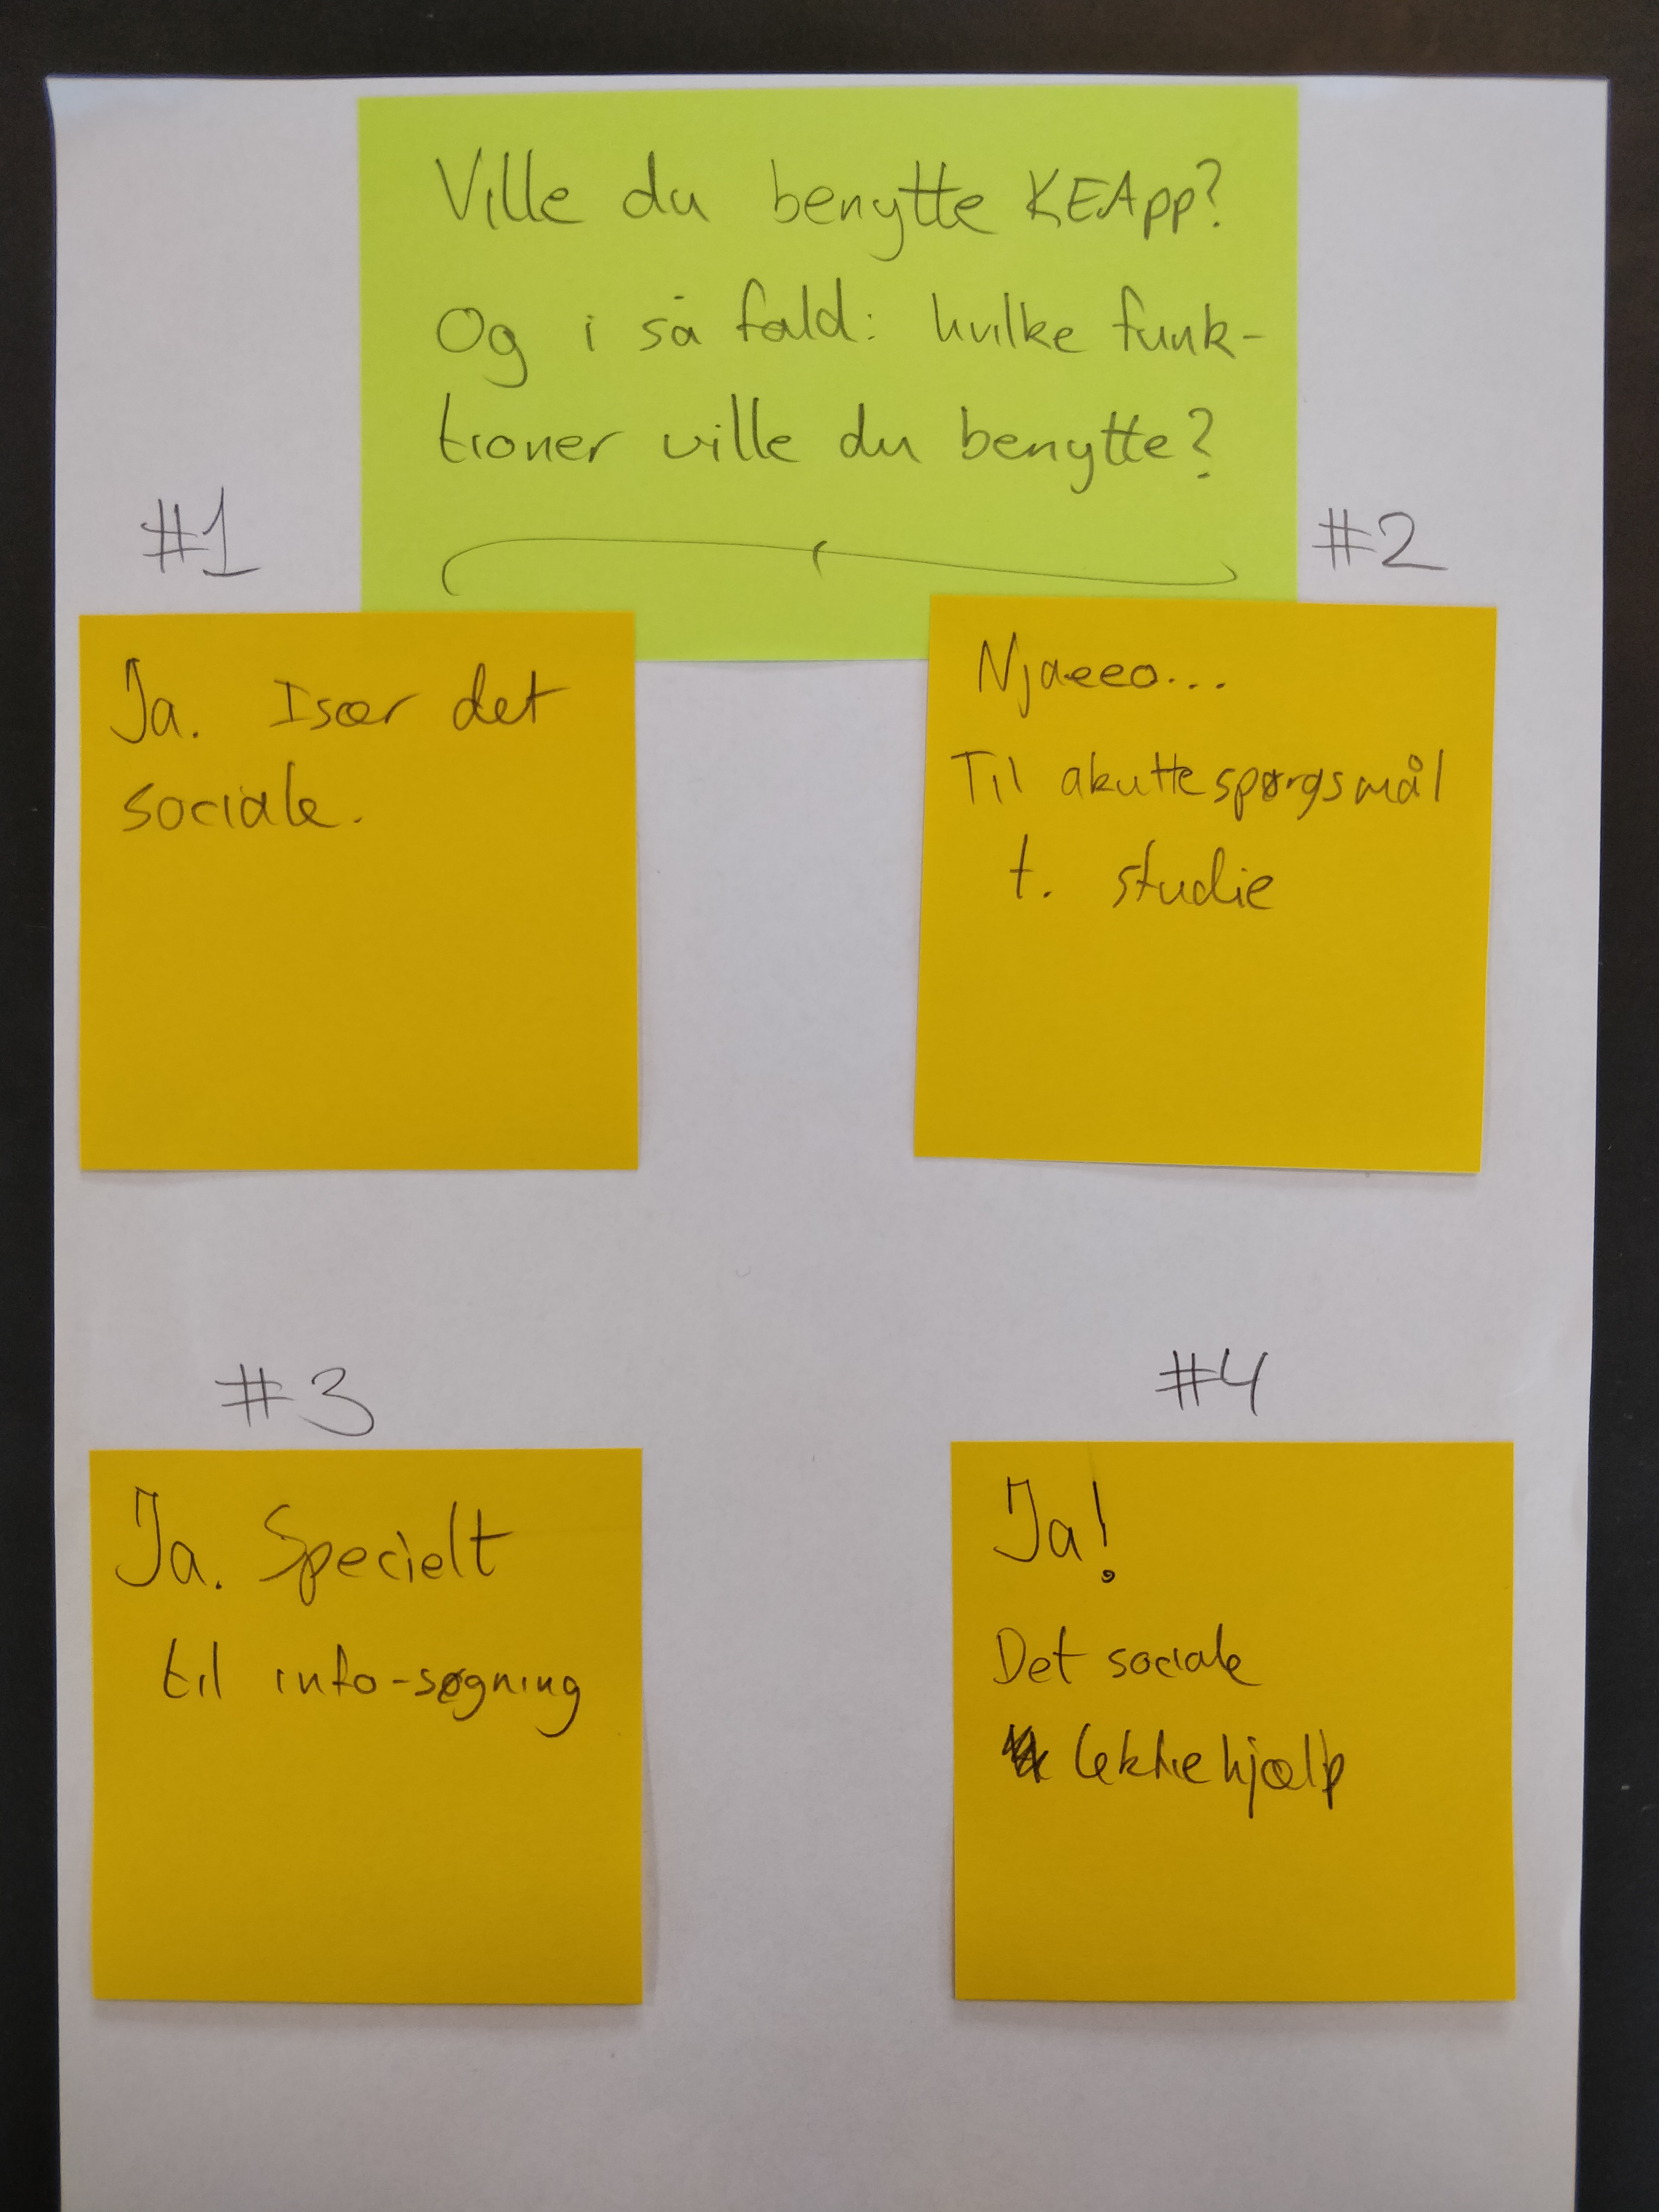 Ville du benytte KEApp?
Og i så fald: hvilke funk-
tioner ville du benytte?
#1
Ja. Især det
sociale.
#2
Njaeeo...
Til akutte spørgsmål
t. studie
#3
Ja. Specielt
til info-søgning
#4
Ja!
Det sociale
lektiehjælp